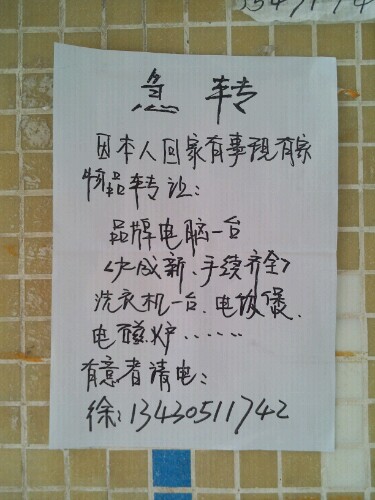 急 转
因本人回家有事现有家
物品转让:
品牌电脑一台
<九成新、手续齐全>
洗衣机一台、电饭煲、
电磁炉……
有意者请电:
徐:13430511742